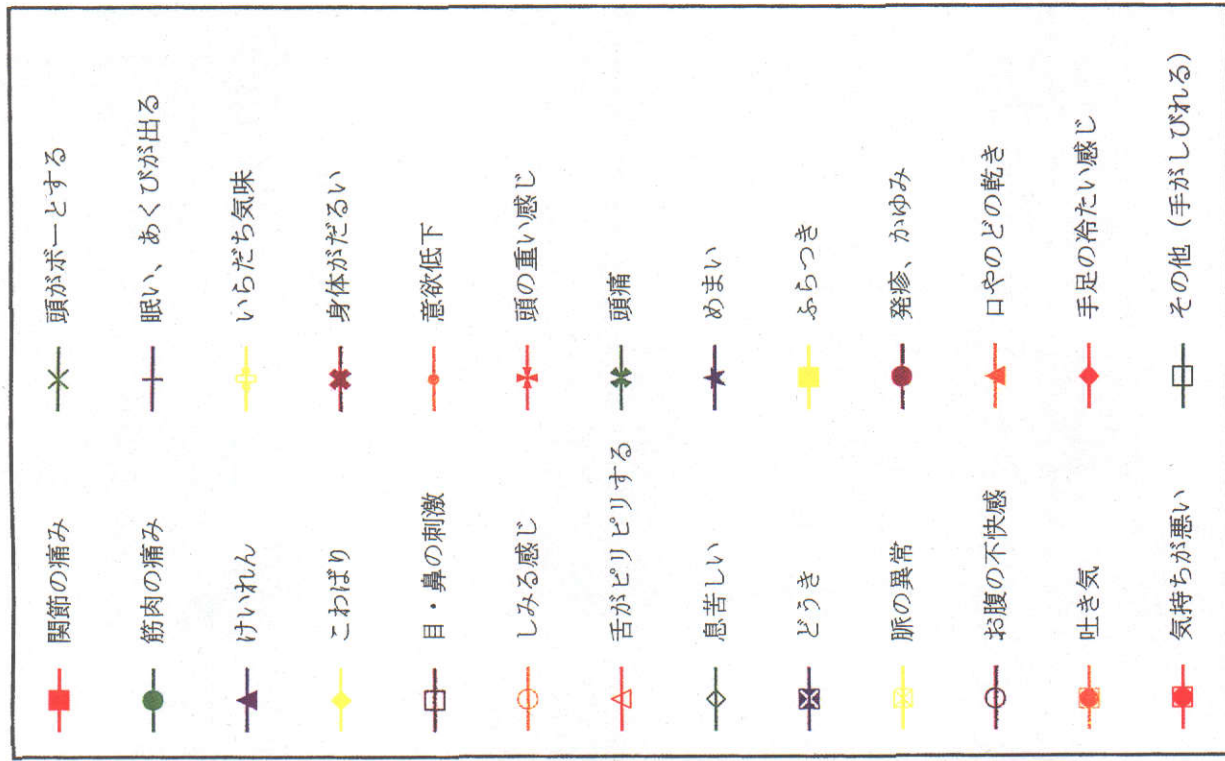 関節の痛み
筋肉の痛み
けいれん
こわばり
目・鼻の刺激
しみる感じ
舌がピリピリする
息苦しい
どうき
脈の異常
お腹の不快感
吐き気
気持ちが悪い
頭がボーとする
眠い、あくびが出る
いらだち気味
身体がだるい
意欲低下
頭の重い感じ
頭痛
めまい
ふらつき
発疹、かゆみ
口やのどの乾き
手足の冷たい感じ
その他（手がしびれる）